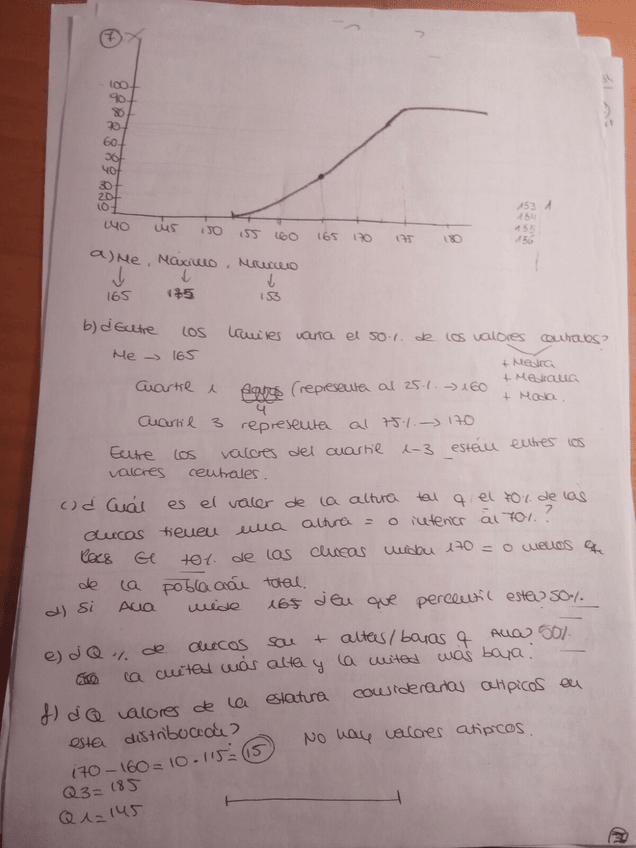 7
100
90
80
70
60
50
40
30
20
10
140 145 150 155 160 165 170 175 180
153 1
154
155
156
a) Me, Máximo, Mínimo
165 175 153
b) ¿Entre los límites varía el 50% de los valores centrales?
Me → 165
+ Media
+ Mediana
+ Moda.
Cuartil 1 (representa al 25% → 160
4
Cuartil 3 representa al 75% → 170
Entre los valores del cuartil 1-3 están entres los
valores centrales.
c) ¿Cuál es el valor de la altura tal q el 70% de las
chicas tienen una altura = o inferior al 70%?
El 70% de las chicas miden 170 = o menos
de la población total.
d) Si Ana mide 165 ¿en que percentil esta? 50%
e) ¿Q % de chicas son + altas/bajas q Ana? 50%
la mitad más alta y la mitad más baja.
f) ¿Q valores de la estatura considerarías atípicos en
esta distribución? No hay valores atípicos.
170-160 = 10 · 1'5 = 15
Q3 = 185
Q1 = 145